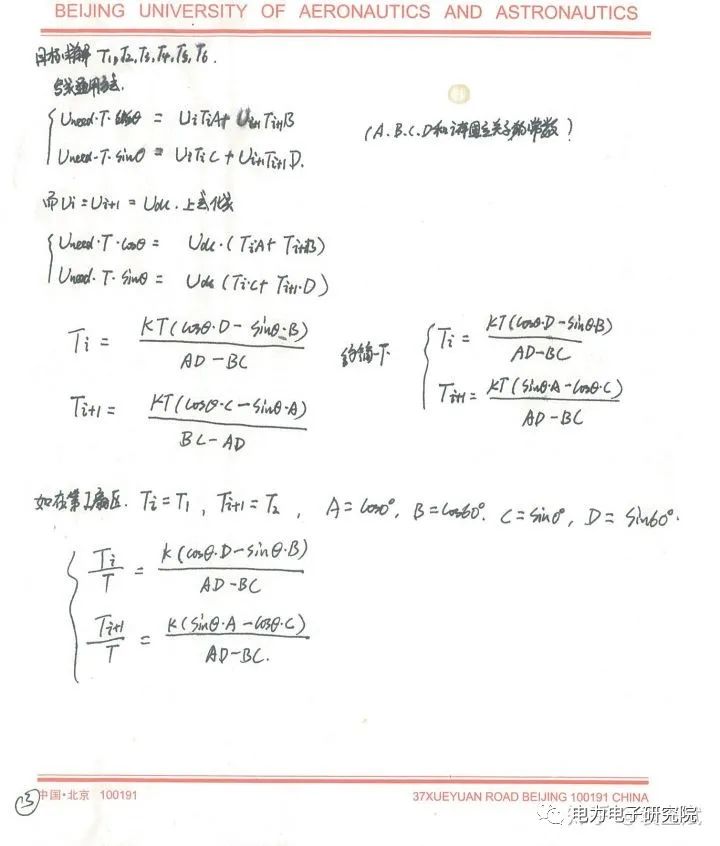 BEIJING UNIVERSITY OF AERONAUTICS AND ASTRONAUTICS
目标求解 T1,T2,T3,T4,T5,T6.
通用方法.
Uneed·T·cosθ = UiTiA+ Ui+1Ti+1B
(A.B.C.D 常数)
Uneed·T·sinθ = UiTiC+Ui+1Ti+1D.
而Ui=Ui+1=Udc.上式化为
Uneed·T·cosθ= Udc·(TiA+ Ti+1B)
Uneed·T·sinθ= Udc(Ti·C+ Ti+1·D)
Ti= KT(cosθ·D-sinθ·B) / AD-BC
Ti+1= KT(cosθ·C-sinθ·A) / BC-AD
一下
Ti= KT(cosθ·D-sinθB) / AD-BC
Ti+1= KT(sinθ·A-cosθ·C) / AD-BC
如在第I扇区. Ti=T1, Ti+1=T2, A=cos0°, B=cos60°. C=sin0°, D=sin60°.
Ti/T = K(cosθ·D-sinθ·B) / AD-BC
Ti+1/T = K(sinθ·A-cosθ·C) / AD-BC.
中国·北京 100191
37XUEYUAN ROAD BEIJING 100191 CHINA
电力电子研究院